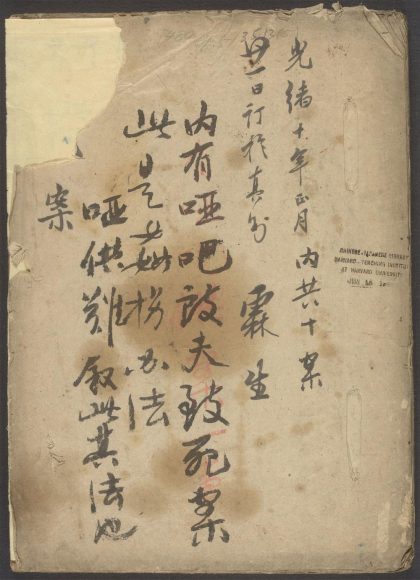 光緒十年正月 內共十案
廿一日訂於真州 霖生
內有啞吧毆夫致死案
此是办法
啞供難叙此其法也
案
CHINESE-JAPANESE LIBRARY
HARVARD-YENCHING INSTITUTE
AT HARVARD UNIVERSITY
JUN